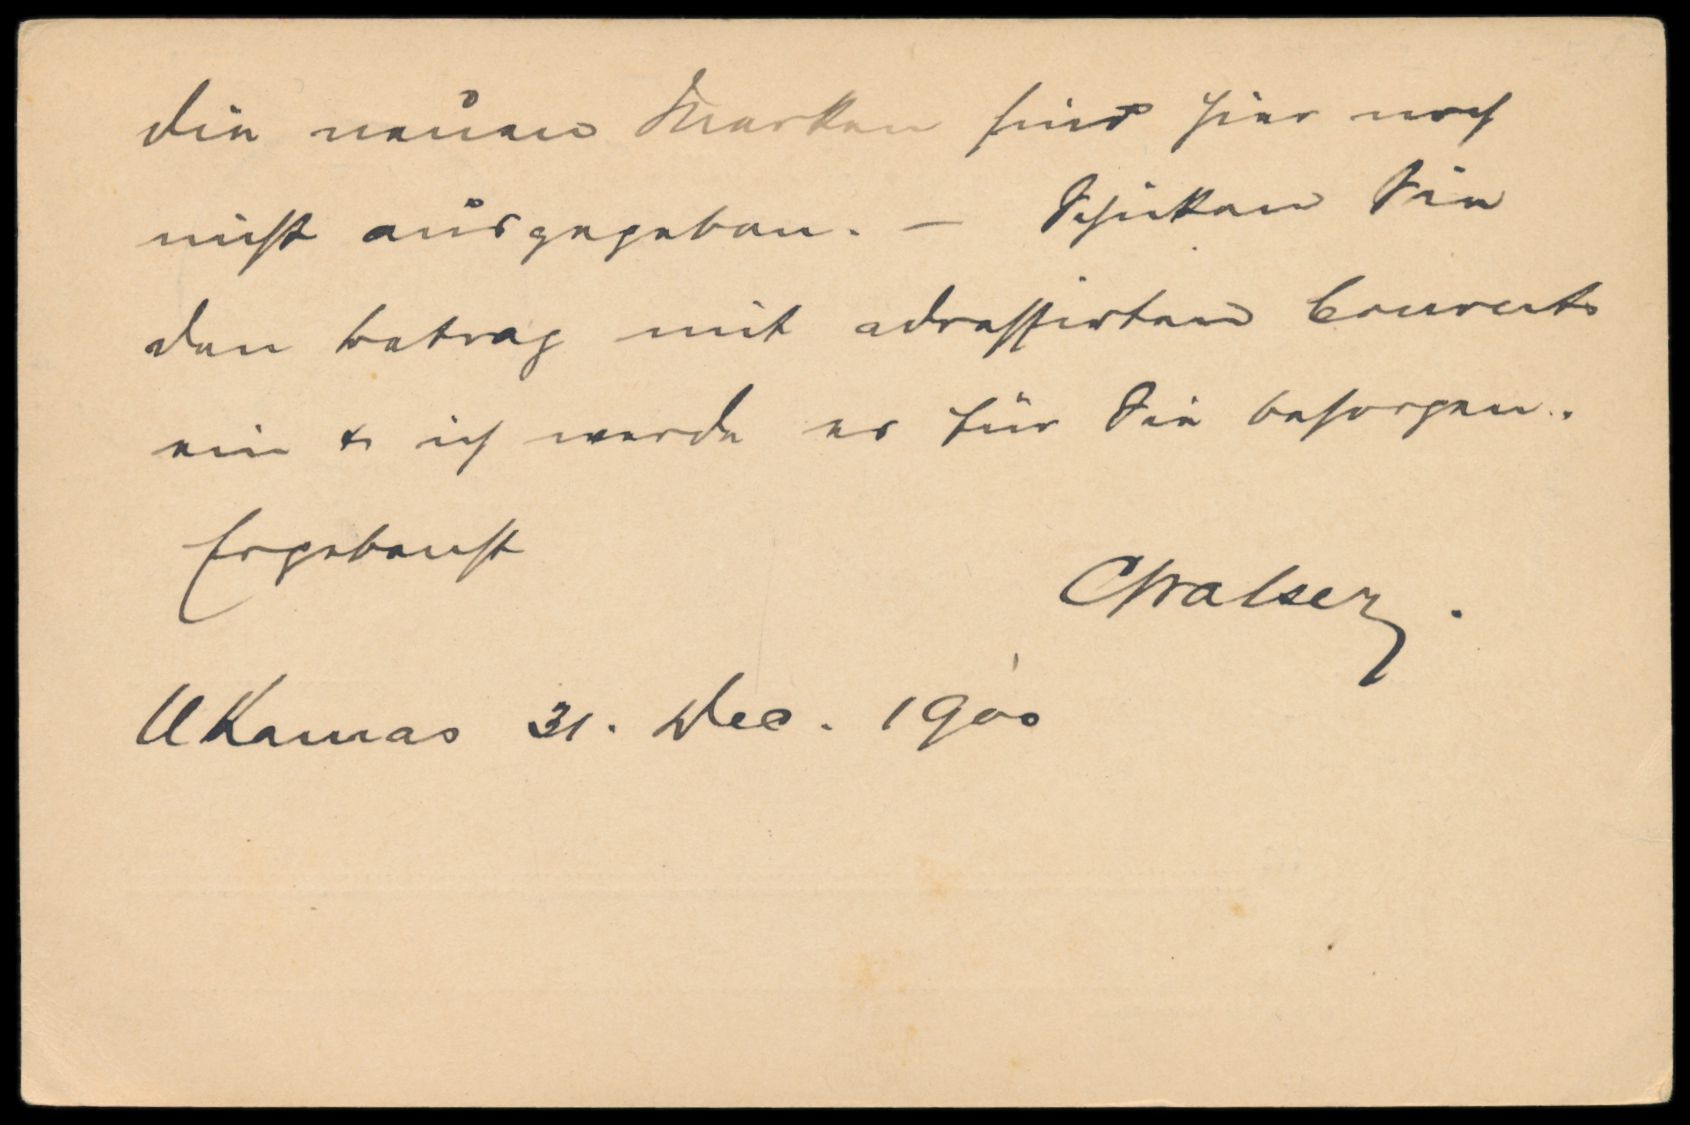 die neuen Marken sind hier noch
nicht ausgegeben. – Schicken Sie
den betrag mit adressirtem Couverts
ein & ich werde es für Sie besorgen.
Ergebenst
CWalser.
Ukamas 31. Dec. 1900